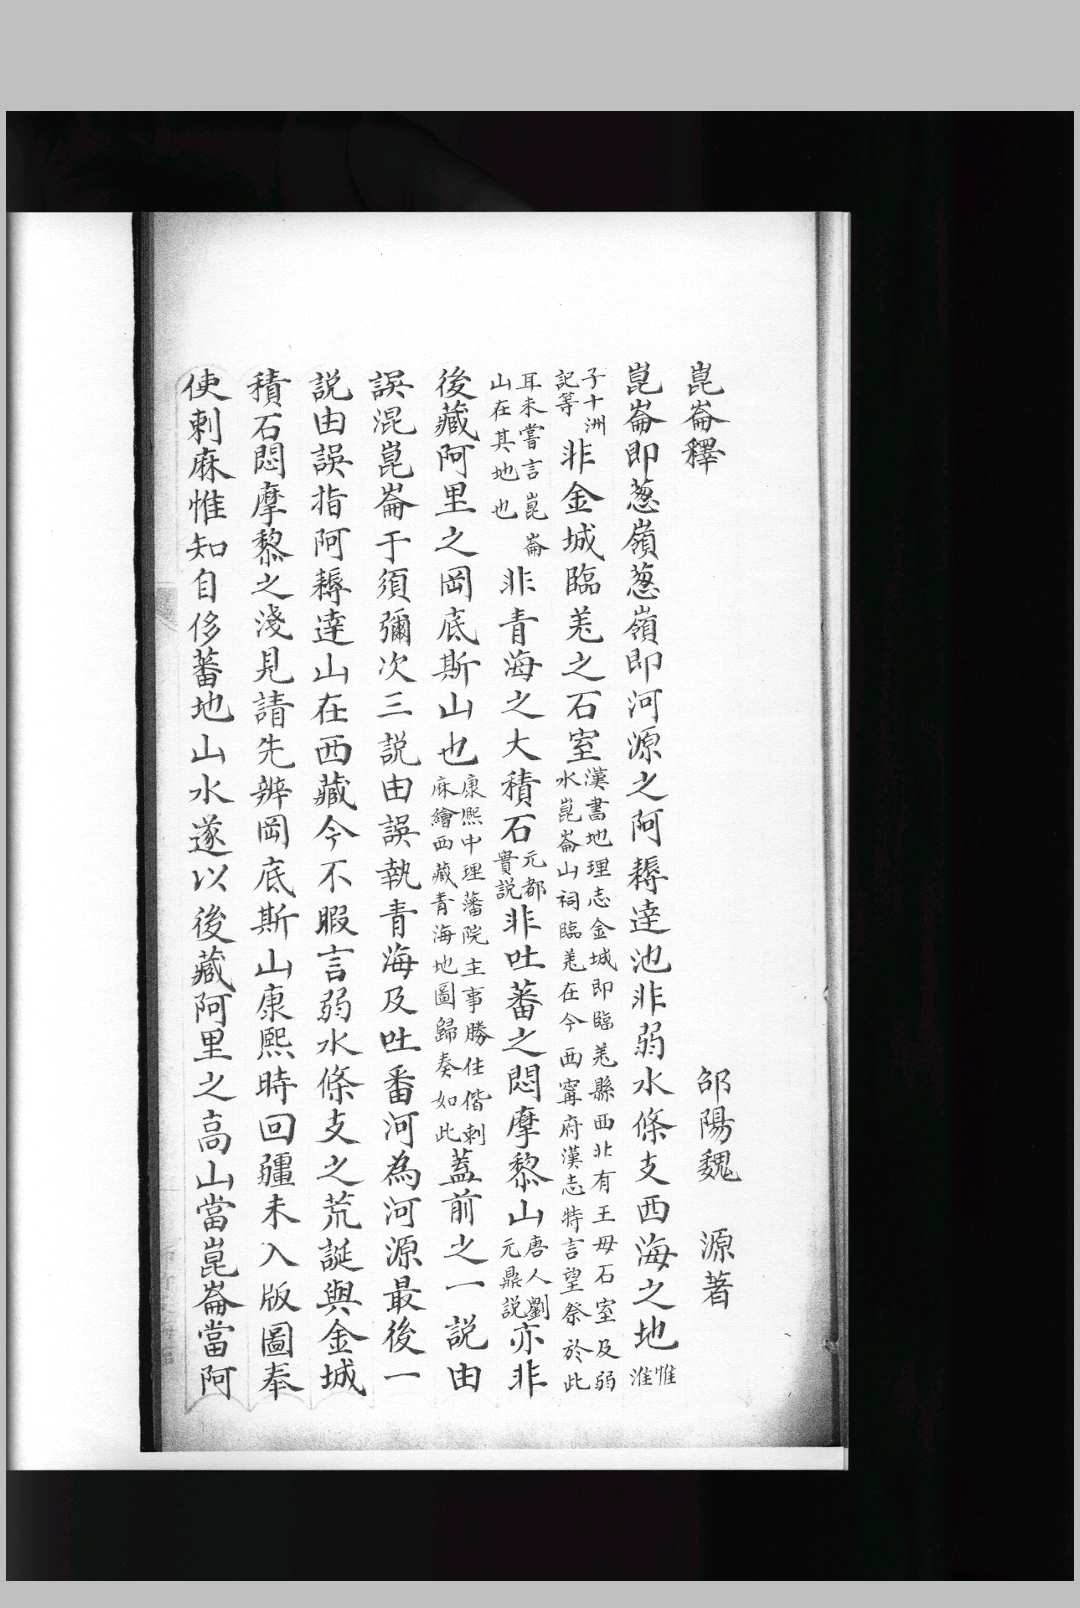 崑崙釋
邵陽魏　源著
崑崙即蔥嶺蔥嶺即河源之阿耨達池非弱水條支西海之地惟淮
子十洲記等非金城臨羌之石室漢書地理志金城即臨羌縣西北有王母石室及弱水崑崙山祠臨羌在今西寧府漢志特言望祭於此
耳未嘗言崑崙山在其地也非青海之大積石元都實説非吐蕃之悶摩黎山唐人劉元鼎説亦非
後藏阿里之岡底斯山也康熙中理藩院主事勝住偕剌麻繪西藏青海地圖歸奏如此蓋前之一説由
誤混崑崙于須彌次三説由誤執青海及吐番河為河源最後一
説由誤指阿耨達山在西藏今不暇言弱水條支之荒誕與金城
積石悶摩黎之淺見請先辨岡底斯山康熙時回疆未入版圖奉
使剌麻惟知自侈蕃地山水遂以後藏阿里之高山當崑崙當阿